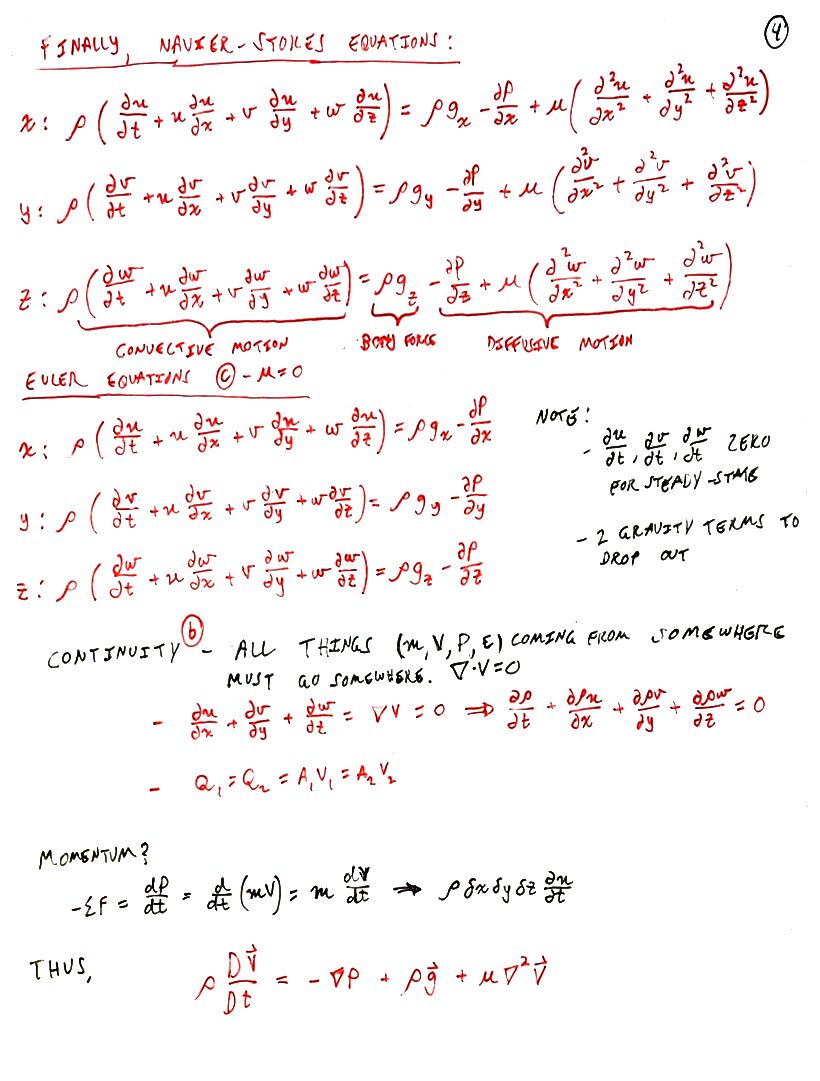 FINALLY, NAVIER-STOKES EQUATIONS:
4
x: ρ(∂u/∂t + u ∂u/∂x + v ∂u/∂y + w ∂u/∂z) = ρg_x - ∂P/∂x + μ(∂²u/∂x² + ∂²u/∂y² + ∂²u/∂z²)
y: ρ(∂v/∂t + u ∂v/∂x + v ∂v/∂y + w ∂v/∂z) = ρg_y - ∂P/∂y + μ(∂²v/∂x² + ∂²v/∂y² + ∂²v/∂z²)
z: ρ(∂w/∂t + u ∂w/∂x + v ∂w/∂y + w ∂w/∂z) = ρg_z - ∂P/∂z + μ(∂²w/∂x² + ∂²w/∂y² + ∂²w/∂z²)
CONVECTIVE MOTION BODY FORCE DIFFUSIVE MOTION
EULER EQUATIONS ⓒ - μ=0
x: ρ(∂u/∂t + u ∂u/∂x + v ∂u/∂y + w ∂u/∂z) = ρg_x - ∂P/∂x
y: ρ(∂v/∂t + u ∂v/∂x + v ∂v/∂y + w ∂v/∂z) = ρg_y - ∂P/∂y
z: ρ(∂w/∂t + u ∂w/∂x + v ∂w/∂y + w ∂w/∂z) = ρg_z - ∂P/∂z
NOTE:
- ∂u/∂t, ∂v/∂t, ∂w/∂t ZERO
FOR STEADY-STATE
- 2 GRAVITY TERMS TO
DROP OUT
CONTINUITY ⓑ - ALL THINGS (m, V, P, E) COMING FROM SOMEWHERE
MUST GO SOMEWHERE. ∇·V=0
- ∂u/∂x + ∂v/∂y + ∂w/∂z = ∇V = 0 ⇒ ∂ρ/∂t + ∂ρu/∂x + ∂ρv/∂y + ∂ρw/∂z = 0
- Q₁ = Q₂ = A₁V₁ = A₂V₂
MOMENTUM?
-ΣF = dP/dt = d/dt (mV) = m dV/dt ⇒ ρ δx δy δz ∂u/∂t
THUS,
ρ DV⃗/Dt = -∇P + ρg⃗ + μ∇²V⃗